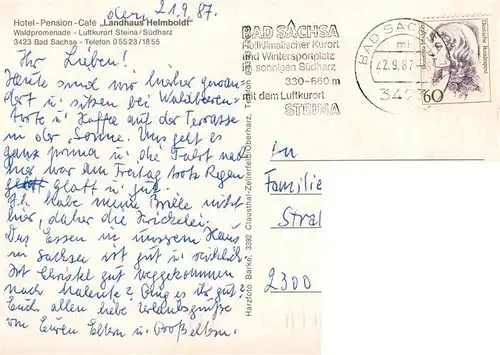 den 21.9.87.
Hotel-Pension-Cafe „Landhaus Helmboldt"
Waldpromenade - Luftkurort Steina / Südharz
3423 Bad Sachsa - Telefon 0 55 23 / 18 55
Ihr Lieben!
Heute sind wir hierher gewan-
dert u. sitzen bei Waldbeeren-
torte u. Kaffee auf der Terrasse
in der Sonne. Uns geht es
ganz prima u. die Fahrt nach
hier war am Freitag trotz Regen
glatt u. gut.
Ich habe meine Brille nicht
hier, daher die Krickelei.
Das Essen in unserm Haus
in Sachsen ist gut u. reichlich
Ist Christel gut weggekommen
nach Malente? Ging es ihr gut?
Euch allen liebe Urlaubsgrüße
von Euren Eltern u. Großeltern.
Harzfoto Barke, 3392 Clausthal-Zellerfeld/Oberharz, Telefon
BAD SACHSA
Heilklimatischer Kurort
und Wintersportplatz
sonnigen Südharz
330-660 m
mit dem Luftkurort
STEINA
BAD SAC
22.9.87
3423
Deutsche Bundespost
60
An
Familie
Straß
2300